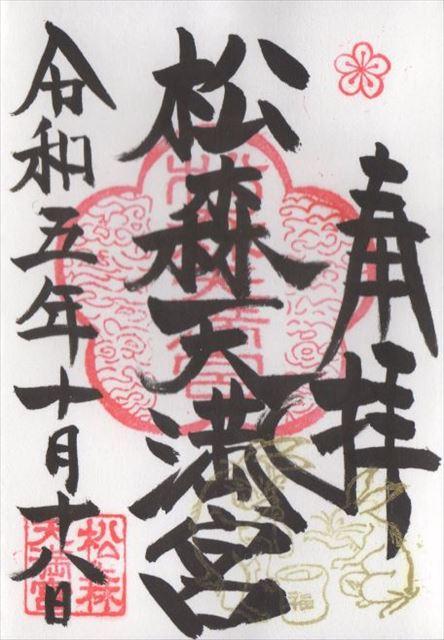 奉拝
松森天満宮
令和五年十月十八日
松森
天満宮
福